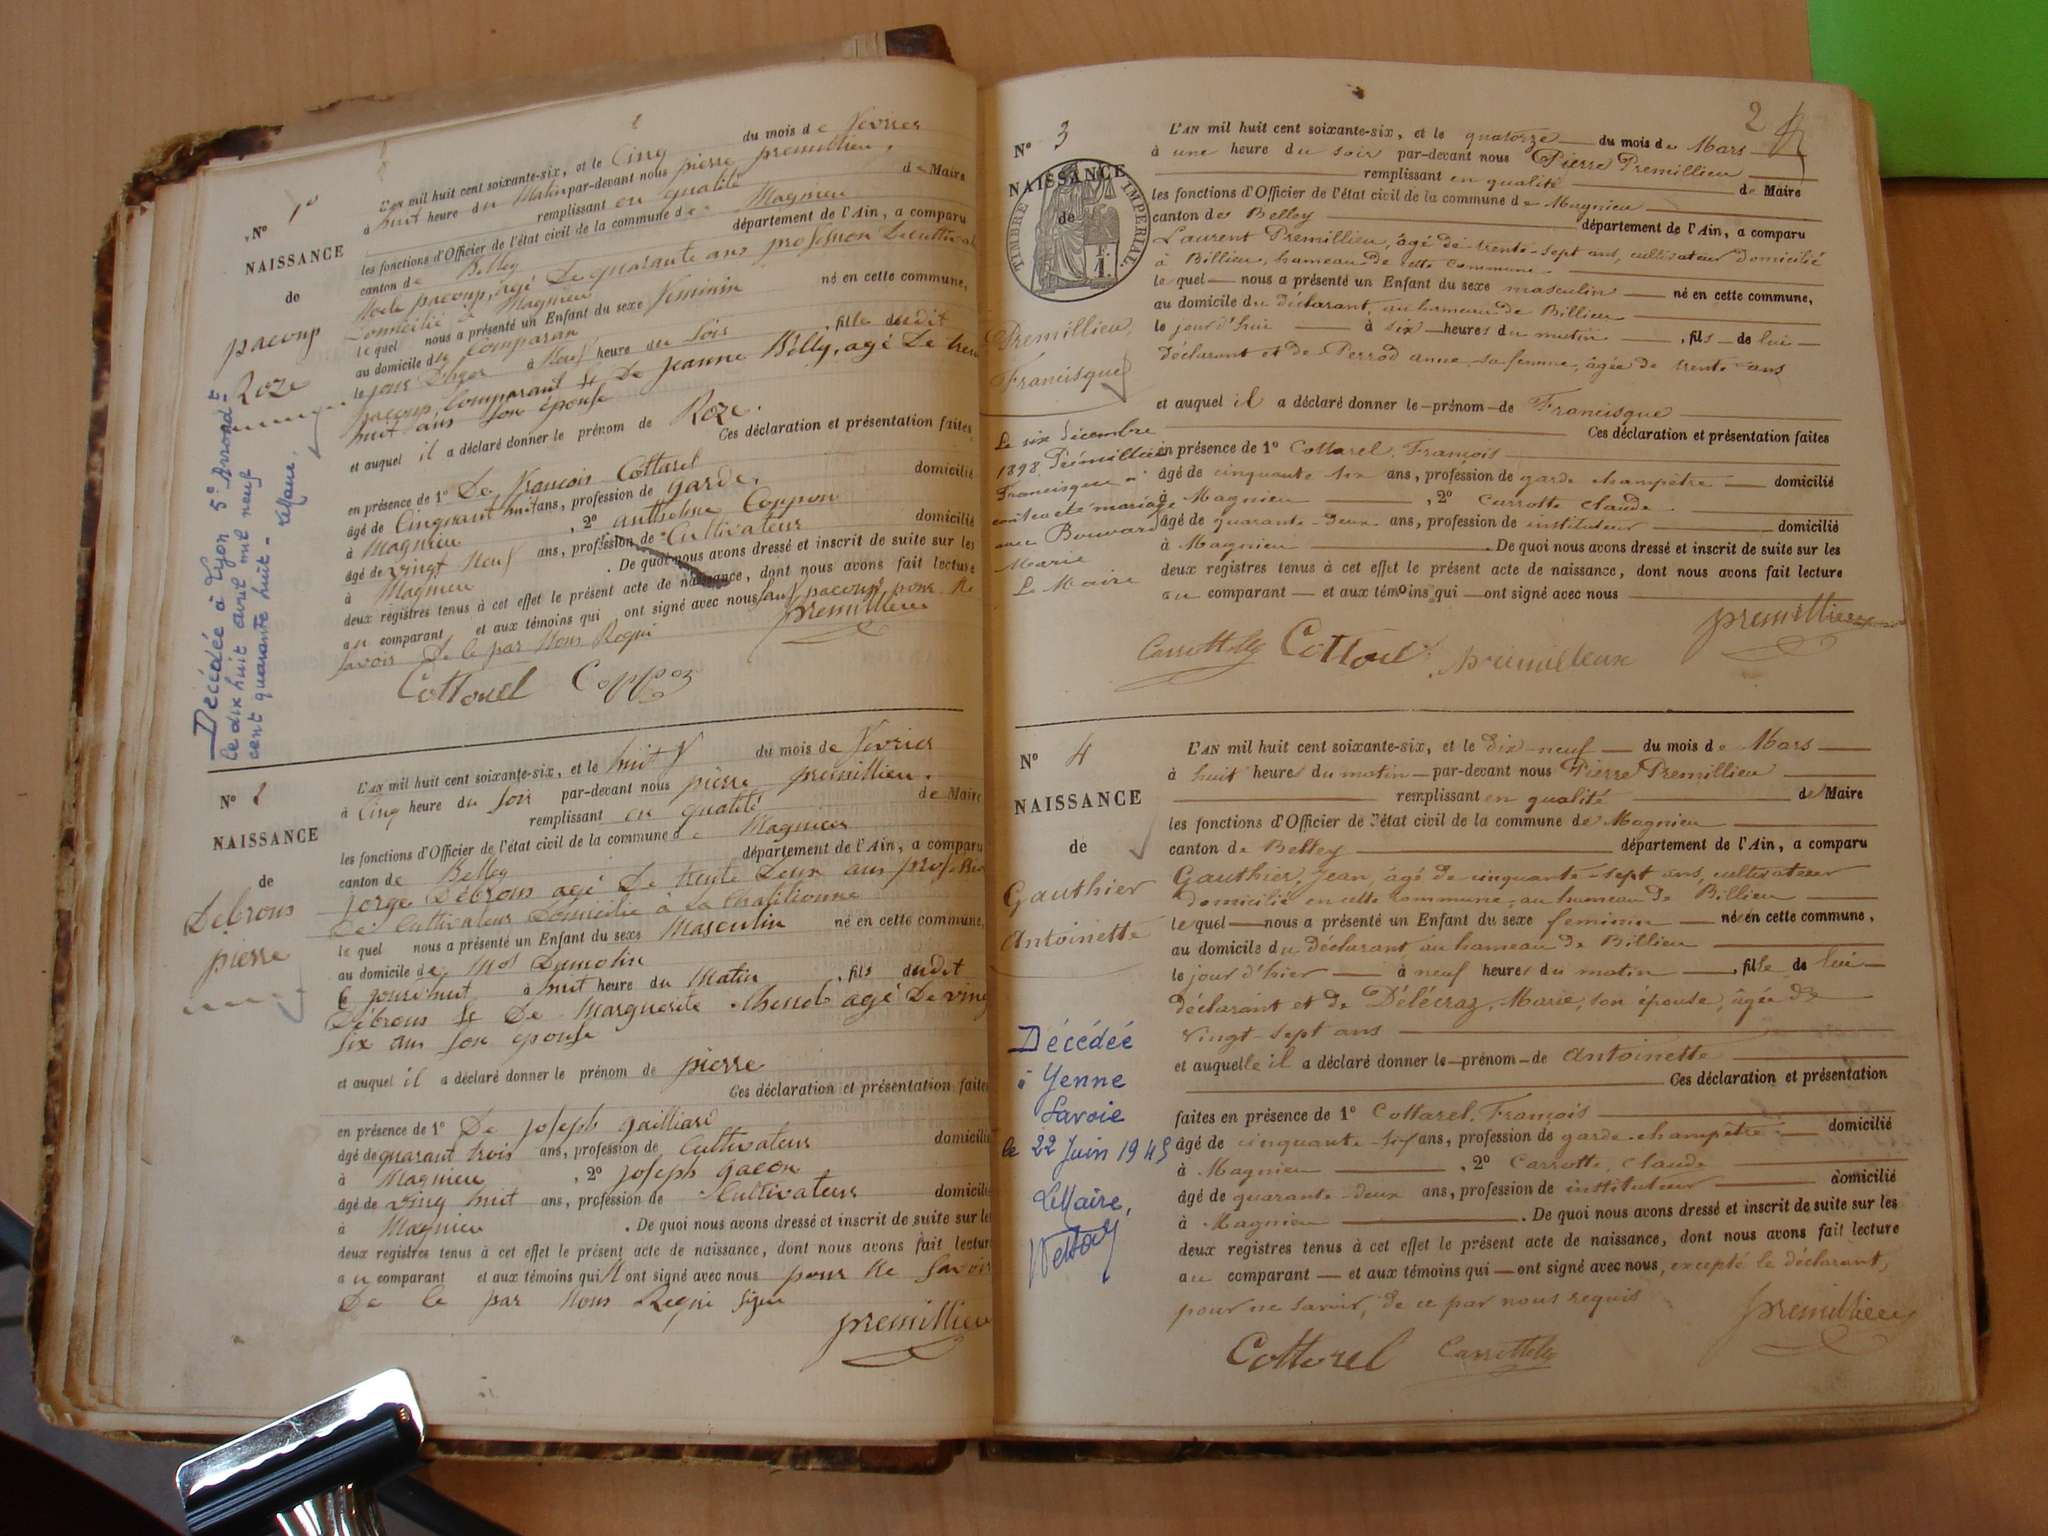 N° 1er
NAISSANCE
de
pacoup
Roze
Décédée à Lyon 5e Arrondt
le dix huit avril mil neuf
cent quarante huit -
Le Maire.
L'AN mil huit cent soixante-six, et le Cinq du mois de fevrier
à huit heure du Matin par-devant nous pierre premillieu,
remplissant en qualité de Maire
les fonctions d'Officier de l'état civil de la commune de Magnieu
canton de Belley département de l'Ain, a comparu
pacoup, agé De quarante ans profession De
Domicilié à Magnieu
le quel nous a présenté un Enfant du sexe feminin né en cette commune,
au domicile du Comparan
le jour D'hier à Neuf heure du Soir, fille dudit
pacoup, Comparant et De jeanne Belly, agé De
huit ans son épouse
et auquel il a déclaré donner le prénom de Roze.
Ces déclaration et présentation faites
en présence de 1° De francois Cottarel
âgé de Cinquant huit ans, profession de garde, domicilié
à Magnieu, 2° anthelme Coupon
âgé de vingt Neuf ans, profession de Cultivateur domicilié
à Magnieu. De quoi nous avons dressé et inscrit de suite sur les
deux registres tenus à cet effet le présent acte de naissance, dont nous avons fait lecture
au comparant et aux témoins qui ont signé avec nous sauf pacoup pour Ne
Savoir De le par Nous Requi
premillieu
Cottarel
N° 2
NAISSANCE
de
Debrous
pierre
L'AN mil huit cent soixante-six, et le huit du mois de fevrier
à Cinq heure du Soir par-devant nous pierre premillieu.
remplissant en qualité de Maire
les fonctions d'Officier de l'état civil de la commune de Magnieu
canton de Belley département de l'Ain, a comparu
jorge Débrous agé De trente Deux ans
De Cultivateur Domicilié à La
le quel nous a présenté un Enfant du sexe Masculin né en cette commune,
au domicile de Dumolin
le à huit heure du Matin, fils dudit
Débrous et De Marguerite agé De
six ans son epouse
et auquel il a déclaré donner le prénom de pierre
Ces déclaration et présentation faites
en présence de 1° De joseph gailliard
âgé de quarant trois ans, profession de Cultivateur domicilié
à Magnieu, 2° joseph gacon
âgé de vingt huit ans, profession de Cultivateur domicilié
à Magnieu. De quoi nous avons dressé et inscrit de suite sur les
deux registres tenus à cet effet le présent acte de naissance, dont nous avons fait lecture
au comparant et aux témoins qui ont signé avec nous pour Ne Savoir
De le par Nous Requi signe
premillieu
2
N° 3
NAISSANCE
de
TIMBRE IMPERIAL
F. 1.
Premillieu,
Francisque
Le six décembre
1898 Prémillieu
Francisque a
contracté mariage
avec Bouvard
Marie
Le Maire
L'AN mil huit cent soixante-six, et le quatorze du mois de Mars
à une heure du soir par-devant nous Pierre Premillieu
remplissant en qualité de Maire
les fonctions d'Officier de l'état civil de la commune de Magnieu
canton de Belley département de l'Ain, a comparu
Laurent Premillieu, âgé de trente-sept ans, cultivateur domicilié
à Billieu, hameau de cette commune
le quel nous a présenté un Enfant du sexe masculin né en cette commune,
au domicile du déclarant, au hameau de Billieu
le jour d'hui à six heures du matin, fils de lui
déclarant et de Perrod anne sa femme, âgée de trente ans
et auquel il a déclaré donner le prénom de Francisque
Ces déclaration et présentation faites
en présence de 1° Cottarel, François
âgé de cinquante six ans, profession de garde champêtre domicilié
à Magnieu, 2° Carrotte Claude
âgé de quarante-deux ans, profession de instituteur domicilié
à Magnieu. De quoi nous avons dressé et inscrit de suite sur les
deux registres tenus à cet effet le présent acte de naissance, dont nous avons fait lecture
au comparant et aux témoins qui ont signé avec nous
premillieu
Cottarel
N° 4
NAISSANCE
de
Gauthier
Antoinette
Décédée
à Yenne
Savoie
le 22 Juin 1945
Le Maire,
L'AN mil huit cent soixante-six, et le dix-neuf du mois de Mars
à huit heures du matin par-devant nous Pierre Premillieu
remplissant en qualité de Maire
les fonctions d'Officier de l'état civil de la commune de Magnieu
canton de Belley département de l'Ain, a comparu
Gauthier, Jean, âgé de cinquante-sept ans, cultivateur
domicilié en cette commune, au hameau de Billieu
le quel nous a présenté un Enfant du sexe feminin né en cette commune,
au domicile du déclarant, au hameau de Billieu
le jour d'hier à neuf heures du matin, fille de lui
déclarant et de Délécraz, Marie, son épouse, âgée de
vingt-sept ans
et auquelle il a déclaré donner le prénom de Antoinette
Ces déclaration et présentation
faites en présence de 1° Cottarel, François
âgé de cinquante-six ans, profession de garde-champêtre domicilié
à Magnieu, 2° Carrotte, Claude
âgé de quarante-deux ans, profession de instituteur domicilié
à Magnieu. De quoi nous avons dressé et inscrit de suite sur les
deux registres tenus à cet effet le présent acte de naissance, dont nous avons fait lecture
au comparant et aux témoins qui ont signé avec nous, excepté le déclarant,
pour ne savoir, de ce par nous requis
premillieu
Cottarel